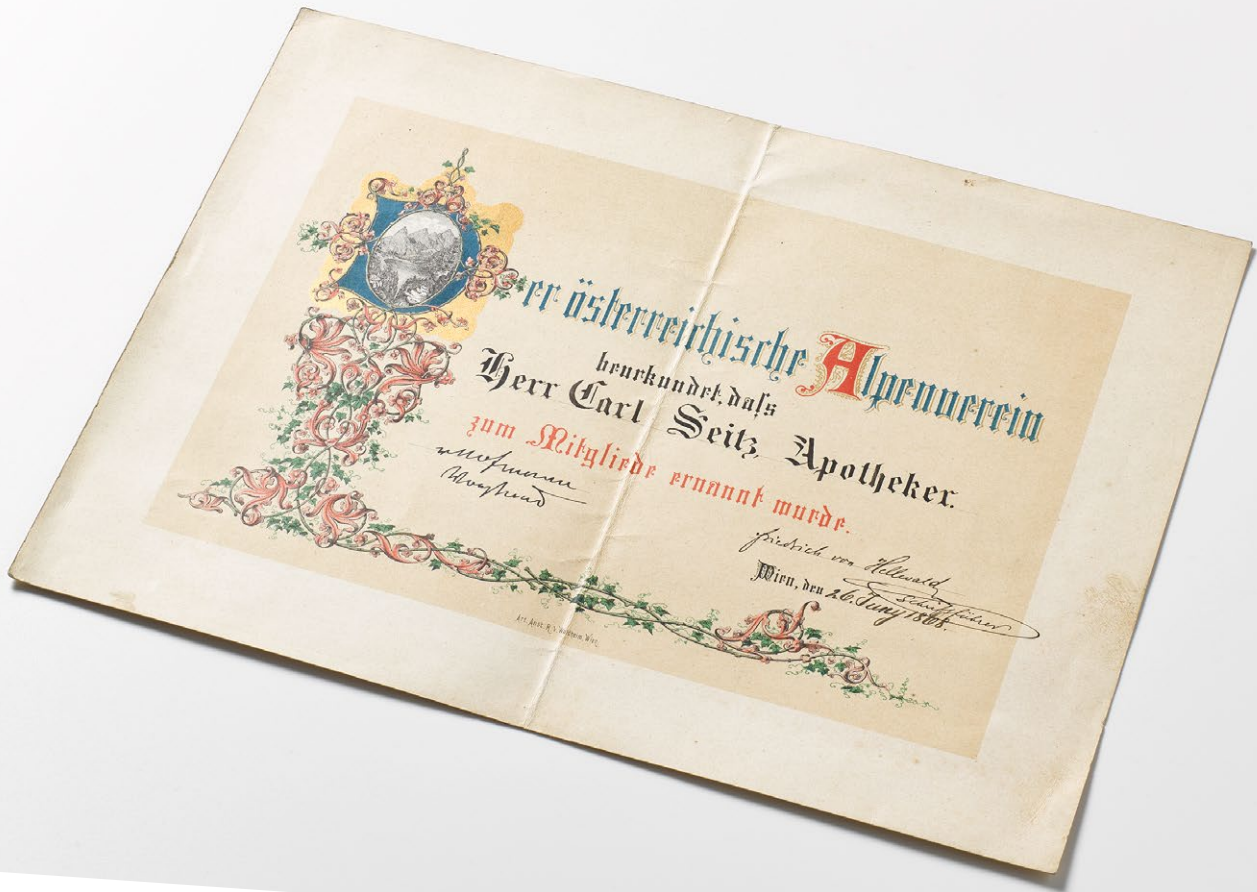 Der österreichische Alpenverein
beurkundet, daſs
Herr Carl Seitz, Apotheker.
zum Mitgliede ernannt wurde.
v Hofmann
Friedrich von Hellwald
Schriftführer
Wien, den 26. Juny 1868.
Art. Anst. R. v. Waldheim, Wien.